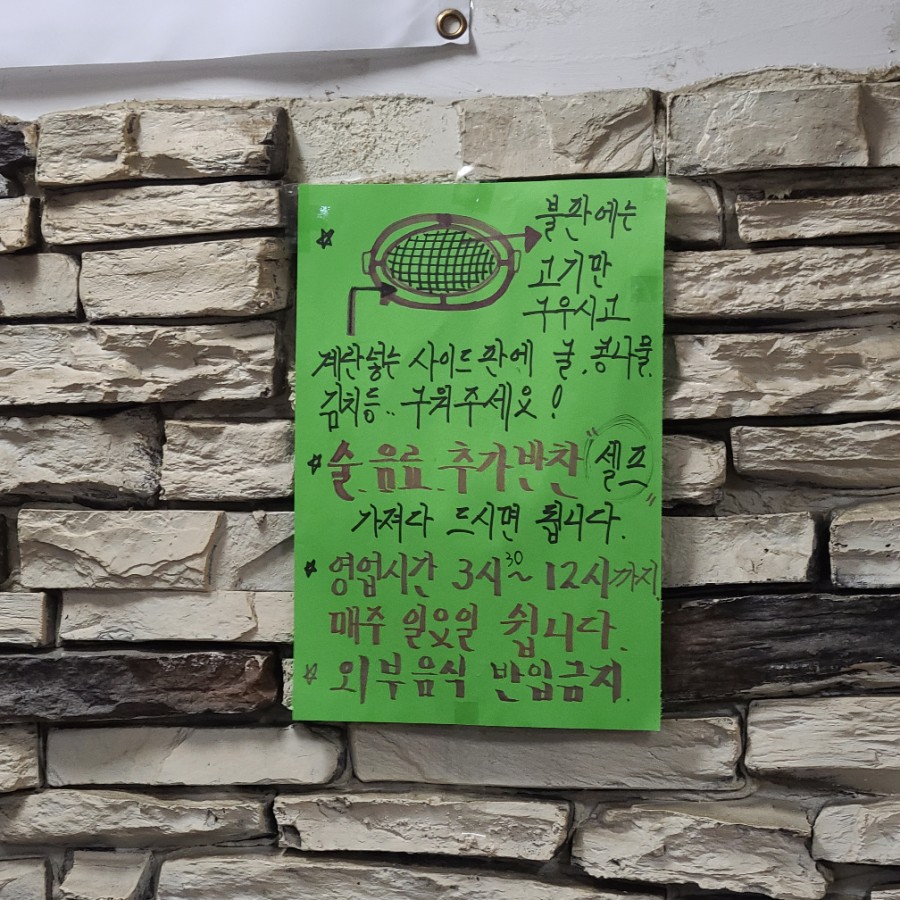 ☆ 불판에는
고기만
구우시고
계란넣는 사이드판에 늘, 콩나물,
김치등.. 구워주세요!
☆ 술, 음료, 추가반찬 "셀프"
가져다 드시면 됩니다.
☆ 영업시간 3시30~12시까지
매주 일요일 쉽니다.
☆ 외부음식 반입금지.